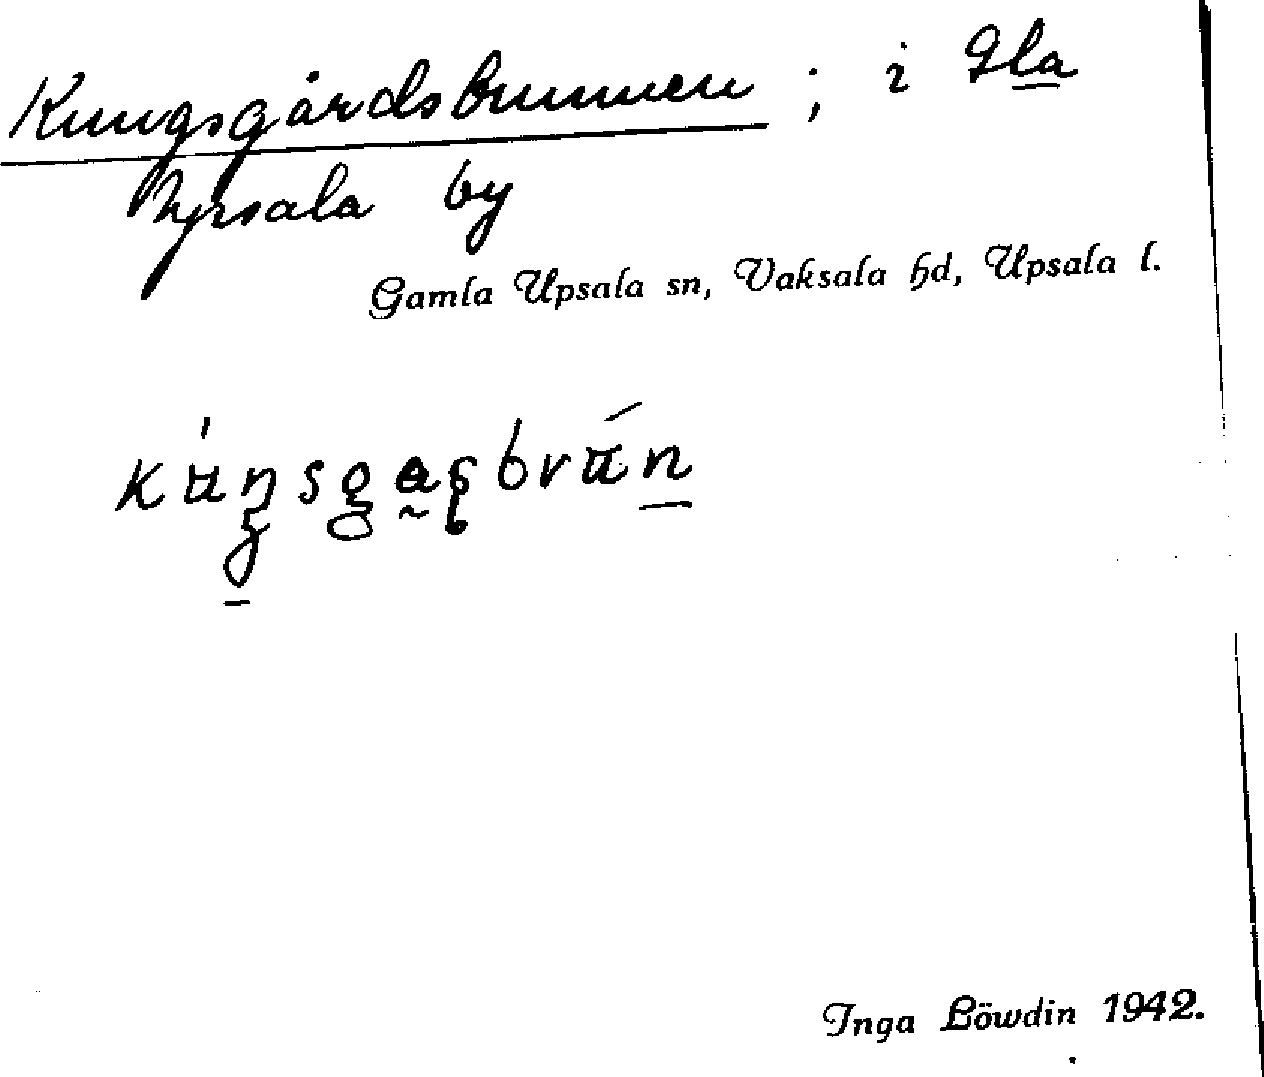 Kungsgårdsbrunnen ; i Gla
Upsala by
Gamla Upsala sn, Vaksala hd, Upsala l.
Inga Löwdin 1942.